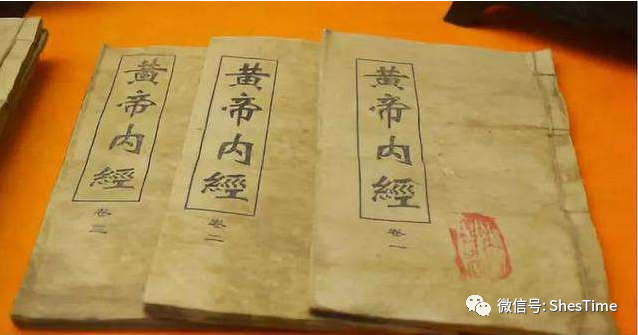 黃帝内經
卷三
黃帝内經
卷二
黃帝内經
卷一
微信号: ShesTime